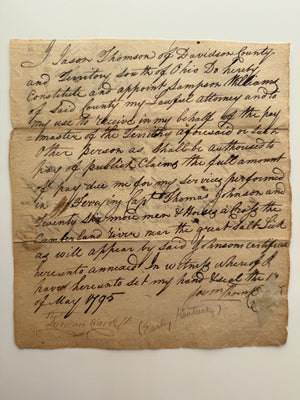 I Jason Thomson of Davidson County
and Territory South of Ohio Do hereby
Constitute and appoint Sampson Williams
of said County my Lawful attorney and to
my use to receive in my behalf of the pay
master of the Territory aforesaid or such
other person as shall be authorised to
pay of publick Claims the full amount
of pay due me for my services performed
in Cap^t Thomas Johnson and
twenty Six more men & Horses a Cross the
Cumberland River near the great Salt Lick
as will appear by said Johnson certificate
hereunto annexed In witness whereof I
have hereunto set my hand & seal the 1^st
of May 1795
(Early Kentucky)